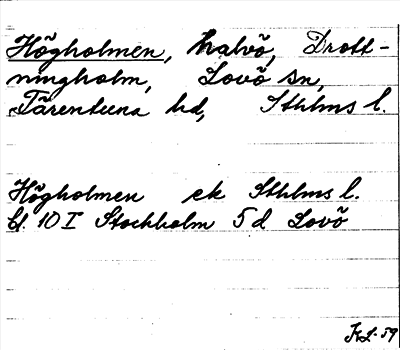 Högholmen, halvö, Drott-
ningholm, Lovö sn,
Färentuna hd, Sthlms l.
Högholmen ek Sthlms l.
bl. 10 I Stockholm 5 d Lovö
KL-59